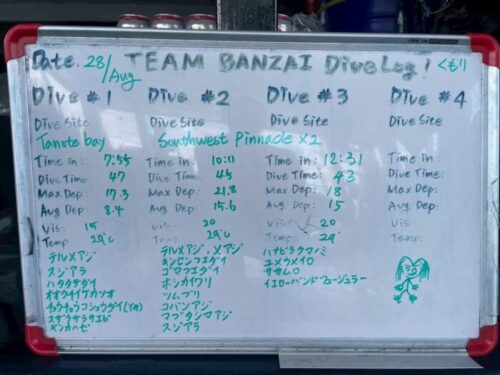 Date. 28/Aug TEAM BANZAI Dive Log! くもり
Dive #1 Dive #2 Dive #3 Dive #4
Dive Site Dive Site Dive Site Dive Site
Tanote bay Southwest Pinnacle x2
Time in: 7:55 Time in: 10:11 Time in: 12:31 Time in:
Dive Time: 47 Dive Time: 45 Dive Time: 43 Dive Time:
Max Dep: 17.3 Max Dep: 21.8 Max Dep: 18 Max Dep:
Avg Dep: 8.4 Avg Dep: 15.6 Avg Dep: 15 Avg Dep:
Vis: 15 Vis: 20 Vis: 20 Vis:
Temp: 29℃ Temp: 29℃ Temp: 29℃ Temp:
テルメアジ テルメアジ、メアジ ハナビラクマノミ
スジアラ カンモンハタ ユメウメイロ
ハタタテダイ ゴマフエダイ ササムロ
オオクチイケカツオ ホシカイワリ イエローバンドフュージュラー
チョウチョウコショウダイ(YG) ツムブリ
スザクサラサエビ コバンアジ
ギンガハゼ マブタシマアジ
スジアラ